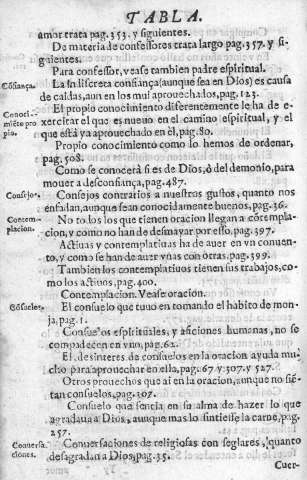 TABLA.
amor trata pag.353. y siguientes.
De materia de confessores trata largo pag.357. y si-
guientes.
Para confessor, vease tambien padre espiritual.
Cõfiança. La indiscreta confiança (aunque sea en Dios) es causa
de caidas, aun en los mui aprouechados, pag.123.
Conoci- El propio conocimiento diferentemente le ha de e-
miẽto pro xercitar el que es nueuo en el camino espiritual, y el
pio. que está ya aprouechado en èl, pag.80.
Propio conocimiento como lo hemos de ordenar,
pag.508.
Como se conocerá si es de Dios, ô del demonio, para
mouer a desconfiança, pag.487.
Consejos. Consejos contrarios a nuestros gustos, quanto nos
enfadan, aunque sean conocidamente buenos, pag.36.
Contem- No todos los que tienen oracion llegan a cõtempla-
placion. cion, y como no han de desmayar por esso, pag.397.
Actiuas y contemplatiuas ha de auer en vn conuen-
to, y como se han de auer vnas con otras, pag.399.
Tambien los contemplatiuos tienen sus trabajos, co-
mo los actiuos, pag.400.
Contemplacion. Vease oracion.
Cõsuelos. El consuelo que tuuo en tomando el habito de mon-
ja, pag.1.
Consuelos espirituales, y aficiones humanas, no se
compadecen en vno, pag.62.
El desinteres de consuelos en la oracion ayuda mu-
cho para aprouechar en ella, pag.67 y 307. y 527.
Otros prouechos que ai en la oracion, aunque no siẽ-
tan consuelos, pag.307.
Consuelo que sentia en su alma de hazer lo que
agradaua a Dios, aunque mas lo sintiesse la carne, pag.
257.
Conuersa- Conuersaciones de religiosas con seglares, quanto
ciones. desagradan a Dios, pag.35.
Cuer-